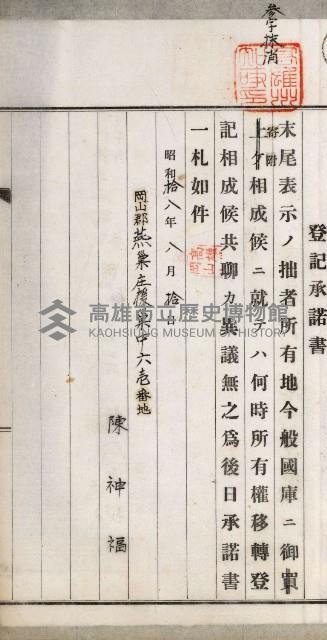 登記承諾書
末尾表示ノ拙者所有地今般國庫ニ御買
上ケ相成候ニ就テハ何時所有權移轉登
寄附
記相成候共聊カ異議無之爲後日承諾書
一札如件
昭和拾八年八月拾日
岡山郡燕巢庄援巢中六壱番地
陳神福
參字抹消
高雄市立歷史博物館
KAOHSIUNG MUSEUM OF HISTORY